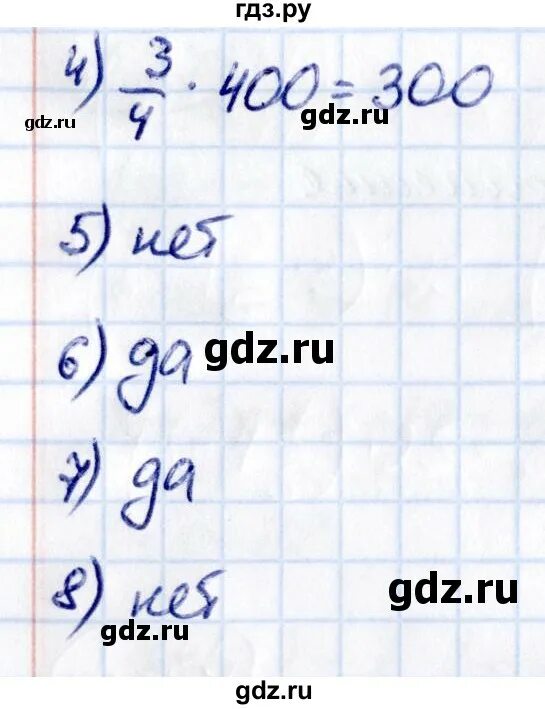 гдз.ру
4) 3/4 · 400 = 300
gdz.ru
gdz.ru
5) нет
6) да
gdz.ru
7) да
8) нет
gdz.ru
gdz.ru
gdz.ru